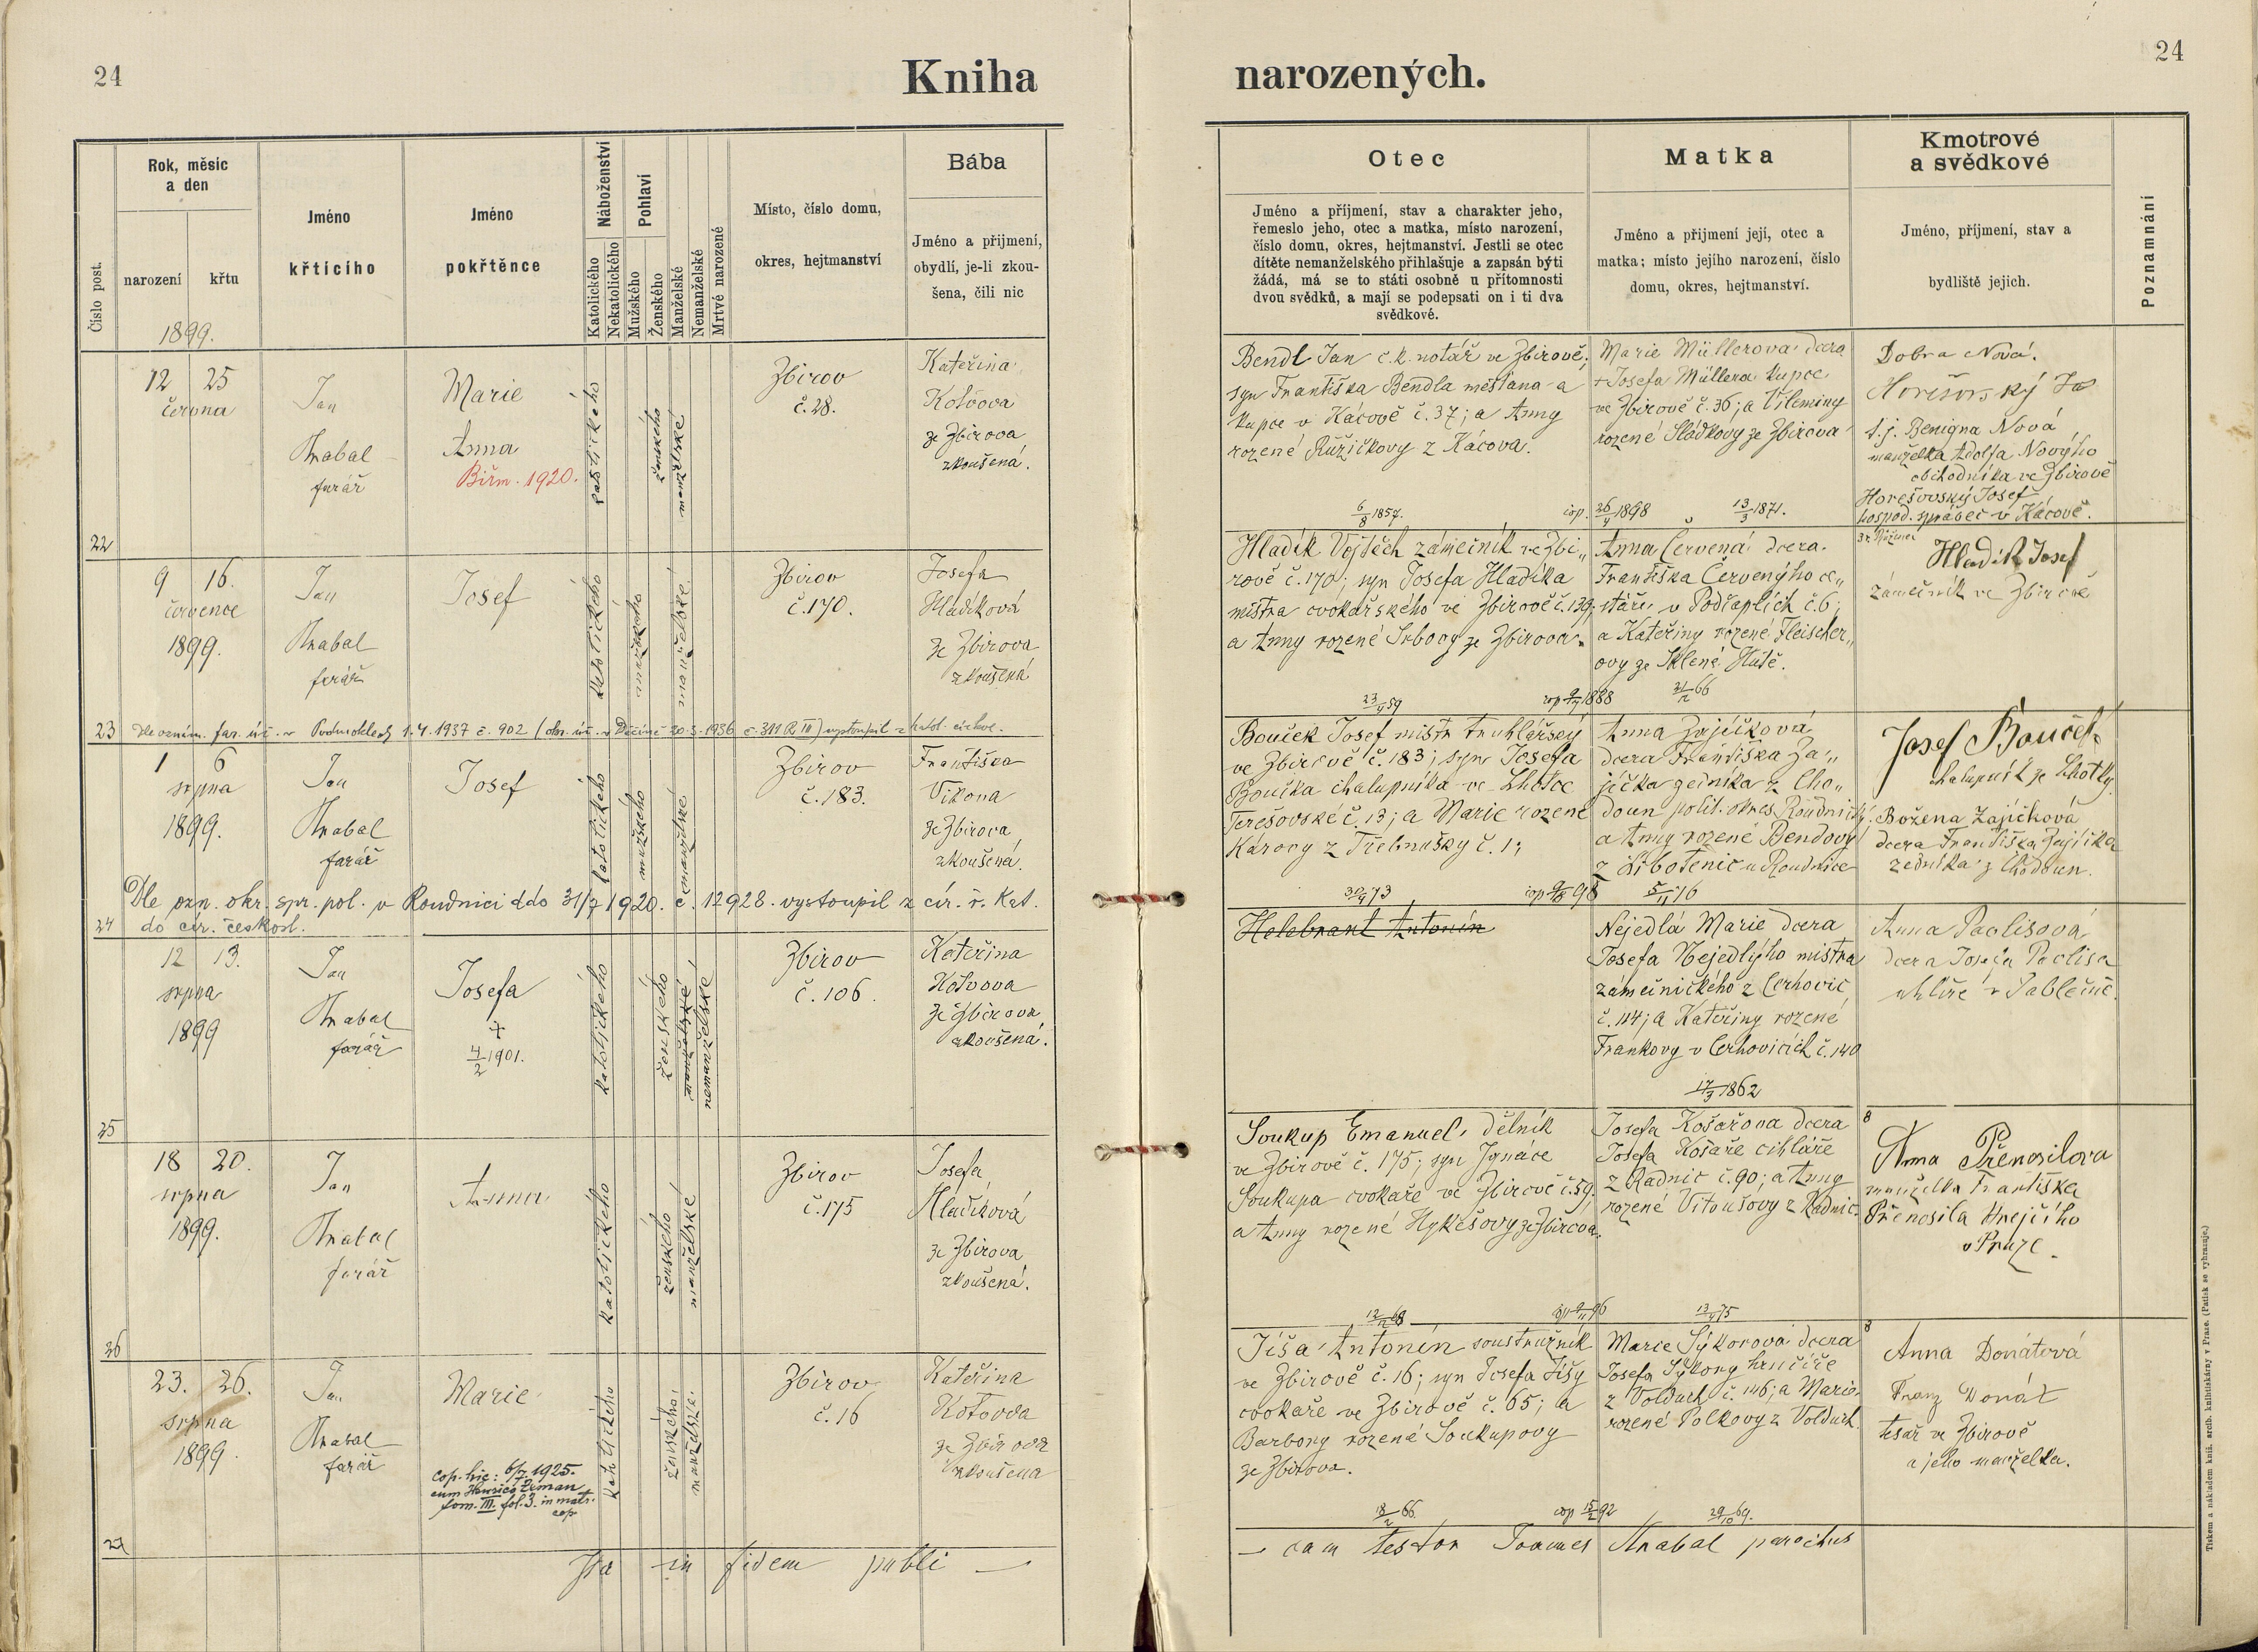 24
Kniha
narozených.
24
Číslo post.
Rok, měsíc
a den
narození
křtu
1899.
Jméno
křtícího
Jméno
pokřtěnce
Náboženství
Katolického
Nekatolického
Pohlaví
Mužského
Ženského
Manželské
Nemanželské
Mrtvě narozené
Místo, číslo domu,
okres, hejtmanství
Bába
Jméno a přijmení,
obydlí, je-li zkou-
šena, čili nic
Otec
Jméno a příjmení, stav a charakter jeho,
řemeslo jeho, otec a matka, místo narození,
číslo domu, okres, hejtmanství. Jestli se otec
dítěte nemanželského přihlašuje a zapsán býti
žádá, má se to státi osobně u přítomnosti
dvou svědků, a mají se podepsati on i ti dva
svědkové.
Matka
Jméno a přijmení její, otec a
matka; místo jejího narození, číslo
domu, okres, hejtmanství.
Kmotrové
a svědkové
Jméno, příjmení, stav a
bydliště jejich.
Poznamnání
22
12 25
června
Jan
Hrabal
farář
Marie
Anna
Biřm. 1920.
katolického
ženského
manželské
Zbirov
č. 28.
Kateřina
Kotvova
ze Zbirova
zkoušená.
Bendl Jan c. k. notář ve Zbirově;
syn Františka Bendla měšťana a
kupce v Kácově č. 37; a Anny
rozené Růžičkovy z Kácova.
6/8 1857.
cop. 26/4 1898
Marie Müllerova dcera
+ Josefa Müllera kupce
ve Zbirově č. 36; a Vilemíny
rozené Sládkovy ze Zbirova
13/3 1871.
Dobra Nová.
Horešovský Jos
t. j. Benigna Nová
manželka Adolfa Nového
obchodníka ve Zbirově
Horešovský Josef
hospod. správec v Kácově.
23
9 16.
července
1899.
Jan
Hrabal
farář
Josef
katolického
mužského
manželské
Zbirov
č. 170.
Josefa
Hladíková
ze Zbirova
zkoušená
Dle oznám. far. úř. v Podmoklech 1.4.1937 č. 902 (okr. úř. v Děčíně 20.3.1936 č. 311 R III) vystoupil z katol. církve.
Hladík Vojtěch zámečník ve Zbi„
rově č. 170; syn Josefa Hladíka
mistra cvokařského ve Zbirově č. 139;
a Anny rozené Srbovy ze Zbirova.
23/4 59
1888
Anna Červená dcera
Františka Červenýho ce„
stáře v Podčaplích č. 6;
a Kateřiny rozené Fleischer„
ovy ze Sklené Hutě.
66
Hladík Josef
zámečník ve Zbirově
24
1 6
srpna
1899.
Jan
Hrabal
farář
Josef
katolického
mužského
manželské
Zbirov
č. 183.
Františka
Vikova
ze Zbirova
zkoušená.
Dle ozn. okr. spr. pol. v Roudnici ddo 31/7 1920. č. 12928. vystoupil z cír. ř. kat.
do cír. českosl.
Bouček Josef mistr truhlářský
ve Zbirově č. 183; syn Josefa
Boučka chalupníka ve Lhotce
Terešovské č. 13; a Marie rozené
Károvy z Třebnušky č. 1;
30/4 73
Anna Zajíčková
dcera Františka Za„
jíčka zedníka z Cho„
doun polit. okres Roudnický.
a Anny rozené Bendovy
z Libotenic u Roudnice
5/11 76
Josef Bouček
chalupník ze Lhotky
Božena Zajíčková
dcera Františka Zajíčka
zedníka z Chodoun.
25
12 13.
srpna
1899
Jan
Hrabal
farář
Josefa
+
4/2 1901.
katolického
ženského
manželské
nemanželské
Zbirov
č. 106.
Kateřina
Kotvova
ze Zbirova
zkoušená.
Helebrant Antonín
Nejedlá Marie dcera
Josefa Nejedlýho mistra
zámečnického z Cerhovic
č. 114; a Kateřiny rozené
Frankovy v Cerhovicích č. 140
17/3 1862
Anna Paclisová
dcera Josefa Paclisa
uhlíře v Jablečně.
26
18 20.
srpna
1899.
Jan
Hrabal
farář
Anna
katolického
ženského
manželské
Zbirov
č. 175
Josefa
Hladíková
ze Zbirova
zkoušená.
Soukup Emanuel, dělník
ve Zbirově č. 175; syn Ignáce
Soukupa cvokaře ve Zbirově č. 59.
a Anny rozené Hykešovy ze Zbirova.
12/12 68
Josefa Košařova dcera
Josefa Košaře cihláře
z Radnic č. 90; a Anny
rozené Vitoušovy z Radnic.
13/4 75
Anna Přenosilova
manželka Františka
Přenosila krejčího
v Praze.
27
23. 26.
srpna
1899.
Jan
Hrabal
farář
Marie
cop. hic: 6/7 1925.
cum Henrico Zeman
tom. III. fol. 3. in matr.
cop
katolického
ženského
manželské
Zbirov
č. 16
Kateřina
Kotvova
ze Zbirova
zkoušena
Jíša Antonín soustružník
ve Zbirově č. 16; syn Josefa Jíšy
cvokaře ve Zbirově č. 65; a
Barbory rozené Soukupovy
ze Zbirova.
18/2 66.
cop 15/2 92
Marie Sýkorová dcera
Josefa Sýkory hrnčíře
z Volduch č. 146; a Marie
rozené Polkovy z Volduch
29/10 69.
Anna Donátová
Franz Donát
tesař ve Zbirově
a jeho manželka.
Ita in fidem publi —
— cam testor Joannes Hrabal parochus
Tiskem a nákladem kníž. arcib. knihtiskárny v Praze. (Patisk se vyhrazuje.)